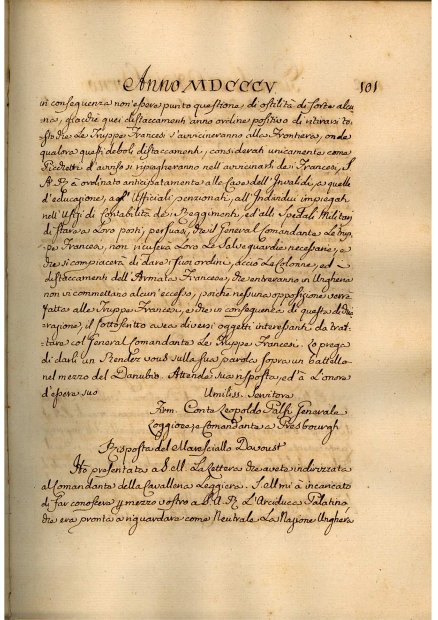 Anno MDCCCV. 101
in conseguenza non essere punto questione, di ostilità di sorte alcu
na, giacchè quei distaccamenti anno ordine positivo di ritirarsi to
sto che le Truppe Francesi s'avvicineranno alla Frontiera, onde
qualora questi deboli distaccamenti, considerati unicamente come
Picchetti d'avviso si ripiegheranno nell'avvicinarsi de i Francesi, S.
A. R. à ordinato anticipatamente alle Case dell'Invalidi, a quelli
d'educazione, agl'Uffiziali penzionati, all'Individui impiegati
nell'Uffizj di Contabilità de i Reggimenti, ed alli Spedali Militari
di stare a Loro posti, persuasi, che il General Comandante Le trup
pe Francesi, non ricuserà Loro Le Salve guardie necessarie, e
che si compiacerà di dare i suoi ordini, acciò Le Colonne, ed
distaccamenti dell'Armata Francese, che entreranno in Ungheria
non vi commettano alcun'eccesso, poichè nessuna opposizione verrà
fatta alle Truppe Francesi, e che in conseguenza di questa dichia
razione, il sottoscritto avea diversi oggetti interessanti da trat
tare col General Comandante Le Truppe Francesi. Lo prega
di darli un Rendez vous sulla sua parola sopra un battello
nel mezzo del Danubio. Attende sua risposta, ed à L'onore
d'essere suo
Umiliss. Servitore
Firm. Conte Leopoldo Palfi Generale
Maggiore, e Comandante a Presbourgh
Risposta del Maresciallo Davoust
Ho presentata a S. M. La Lettera che avete indirizzata
al Comandante della Cavalleria Leggiera. S. M. mi à incaricato
di far conoscere p mezzo vostro a S. A. R. L'Arciduca Palatino,
che era pronta a riguardare come Neutrale La Nazione Unghera